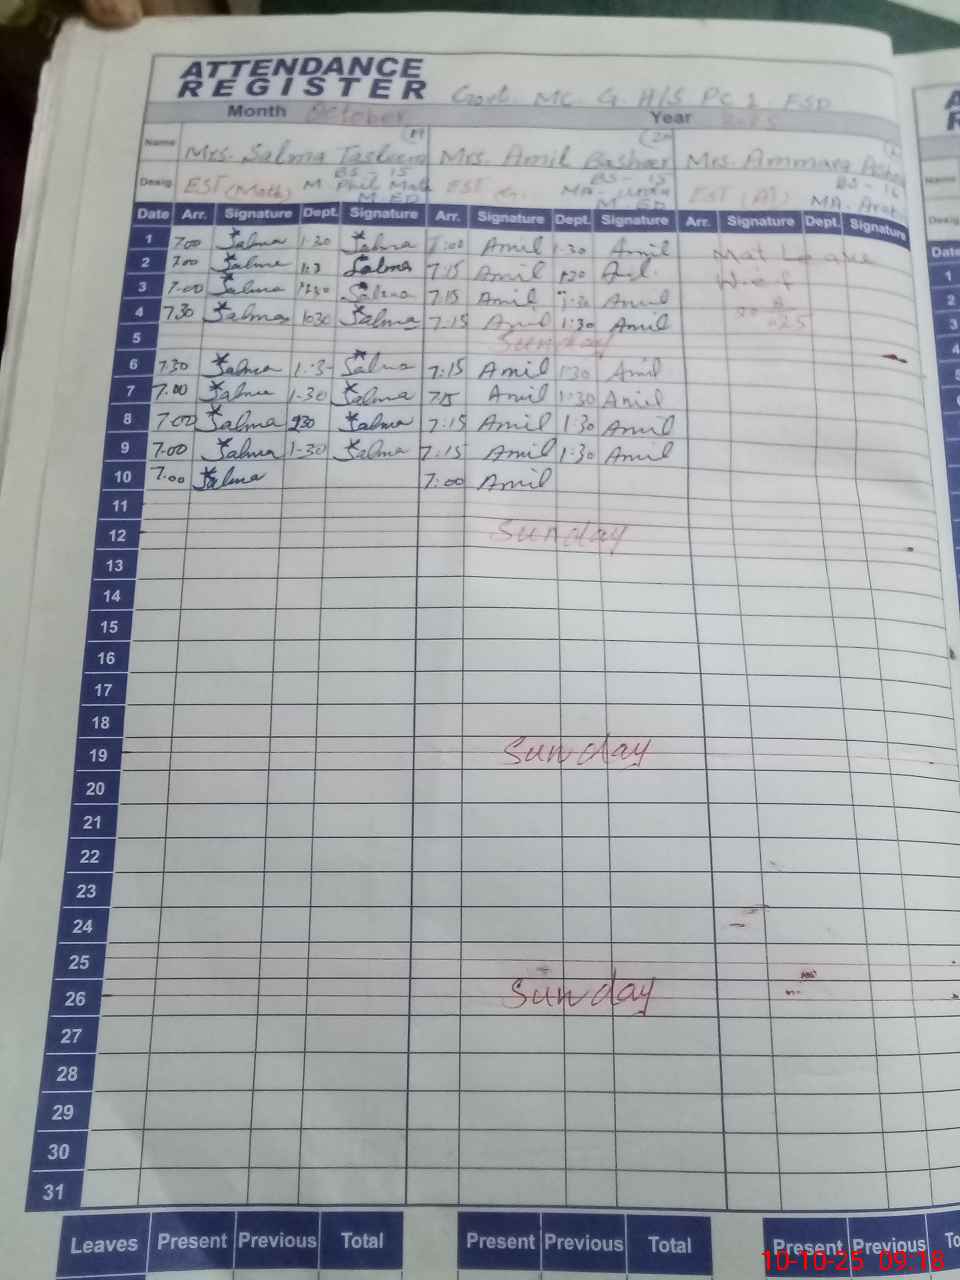 ATTENDANCE
REGISTER Govt. MC. G. H/S PC 1 FSD
Month October Year 2025
Name Mrs. Salma Tasleem Mrs. Amil Bashar Mrs. Ammara
Desig. EST (Math) BS-15 M. Phil Math M.ED EST BS-15 MA- M ED EST (AT) BS-16 MA. Arab.
Date Arr. Signature Dept. Signature Arr. Signature Dept. Signature Arr. Signature Dept. Signature
1 7.00 Salma 1-30 Salma 7:00 Amil 1-30 Amil Mat Leave
2 7.00 Salma 1:3 Salma 7:15 Amil 1:30 W.e.f
3 7.00 Salma Salma 7.15 Amil 1:30 Amil
4 7.30 Salma 1030 Salma 7.15 Amil 1:30 Amil
5 Sunday
6 7.30 Salma 1.-3- Salma 7:15 Amil 1:30 Amil
7 7.00 Salma 1-30 Salma 7.15 Amil 1:30 Amil
8 7.00 Salma Salma 7.15 Amil 1.30 Amil
9 7.00 Salma 1-30 Salma 7.15 Amil 1.30 Amil
10 7.00 Salma 7:00 Amil
11
12 Sunday
13
14
15
16
17
18
19 Sunday
20
21
22
23
24
25
26 Sunday
27
28
29
30
31
Leaves Present Previous Total Present Previous Total Present Previous
10-10-25 09:18